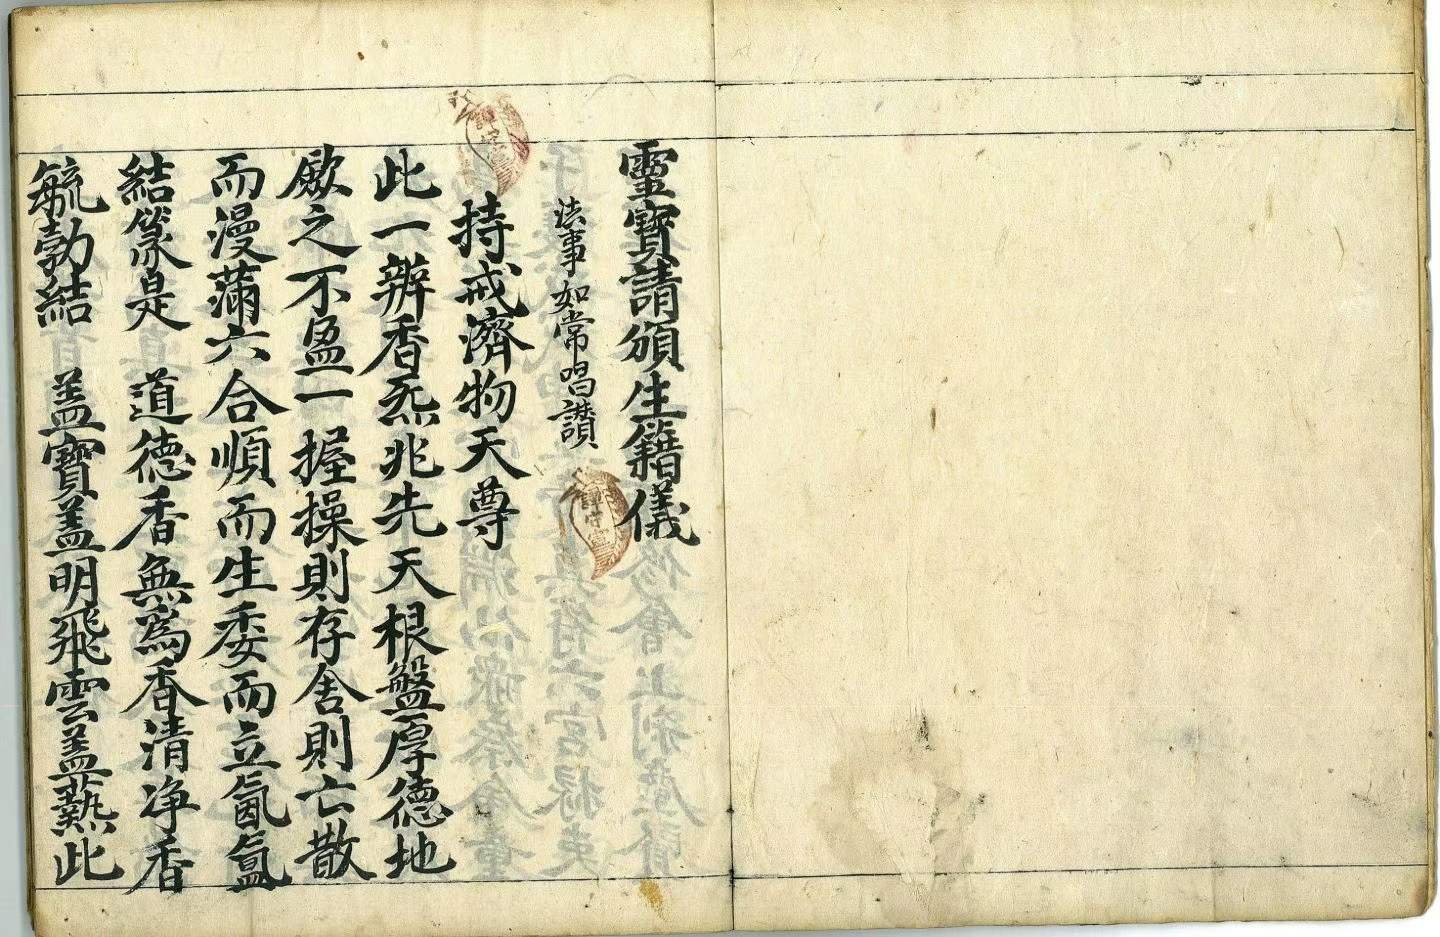 靈寶請頒生籍儀
法事如常唱讃
持戒濟物天尊
此一辦香炁兆先天根盤厚德地
歛之不盈一握操則存舍則亡散
而漫滿六合順而生委而立氤氳
結篆是 道德香無為香清浄香
毓勃結 盖寶盖明飛雲盖爇此